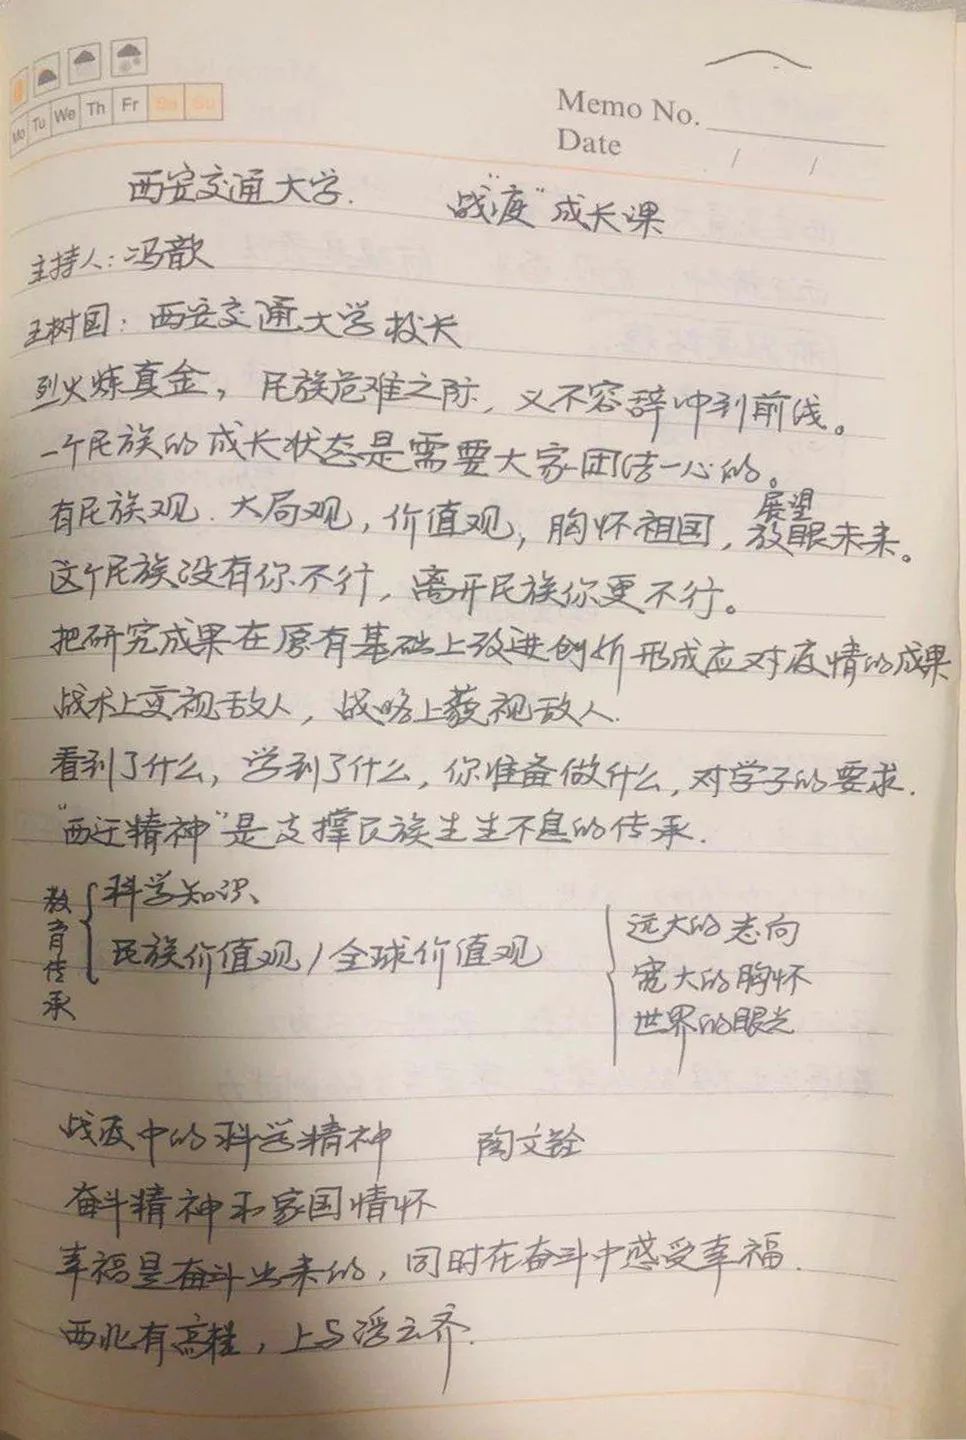 Mo Tu We Th Fr Sa Su
Memo No.
Date / /
西安交通大学. 战"疫"成长课
主持人：冯歆
王树国：西安交通大学校长
烈火炼真金，民族危难之际，义不容辞冲到前线。
一个民族的成长状态是需要大家团结一心的。
有民族观．大局观，价值观，胸怀祖国，放眼未来。
展望
这个民族没有你不行，离开民族你更不行。
把研究成果在原有基础上改进创新形成应对疫情的成果
战术上重视敌人，战略上藐视敌人．
看到了什么，学到了什么，你准备做什么，对学子的要求．
"西迁精神"是支撑民族生生不息的传承．
教育传承
科学知识、
民族价值观/全球价值观
远大的志向
宽大的胸怀
世界的眼光
战疫中的科学精神 陶文铨
奋斗精神和家国情怀
幸福是奋斗出来的，同时在奋斗中感受幸福．
西北有高楼，上与浮云齐．